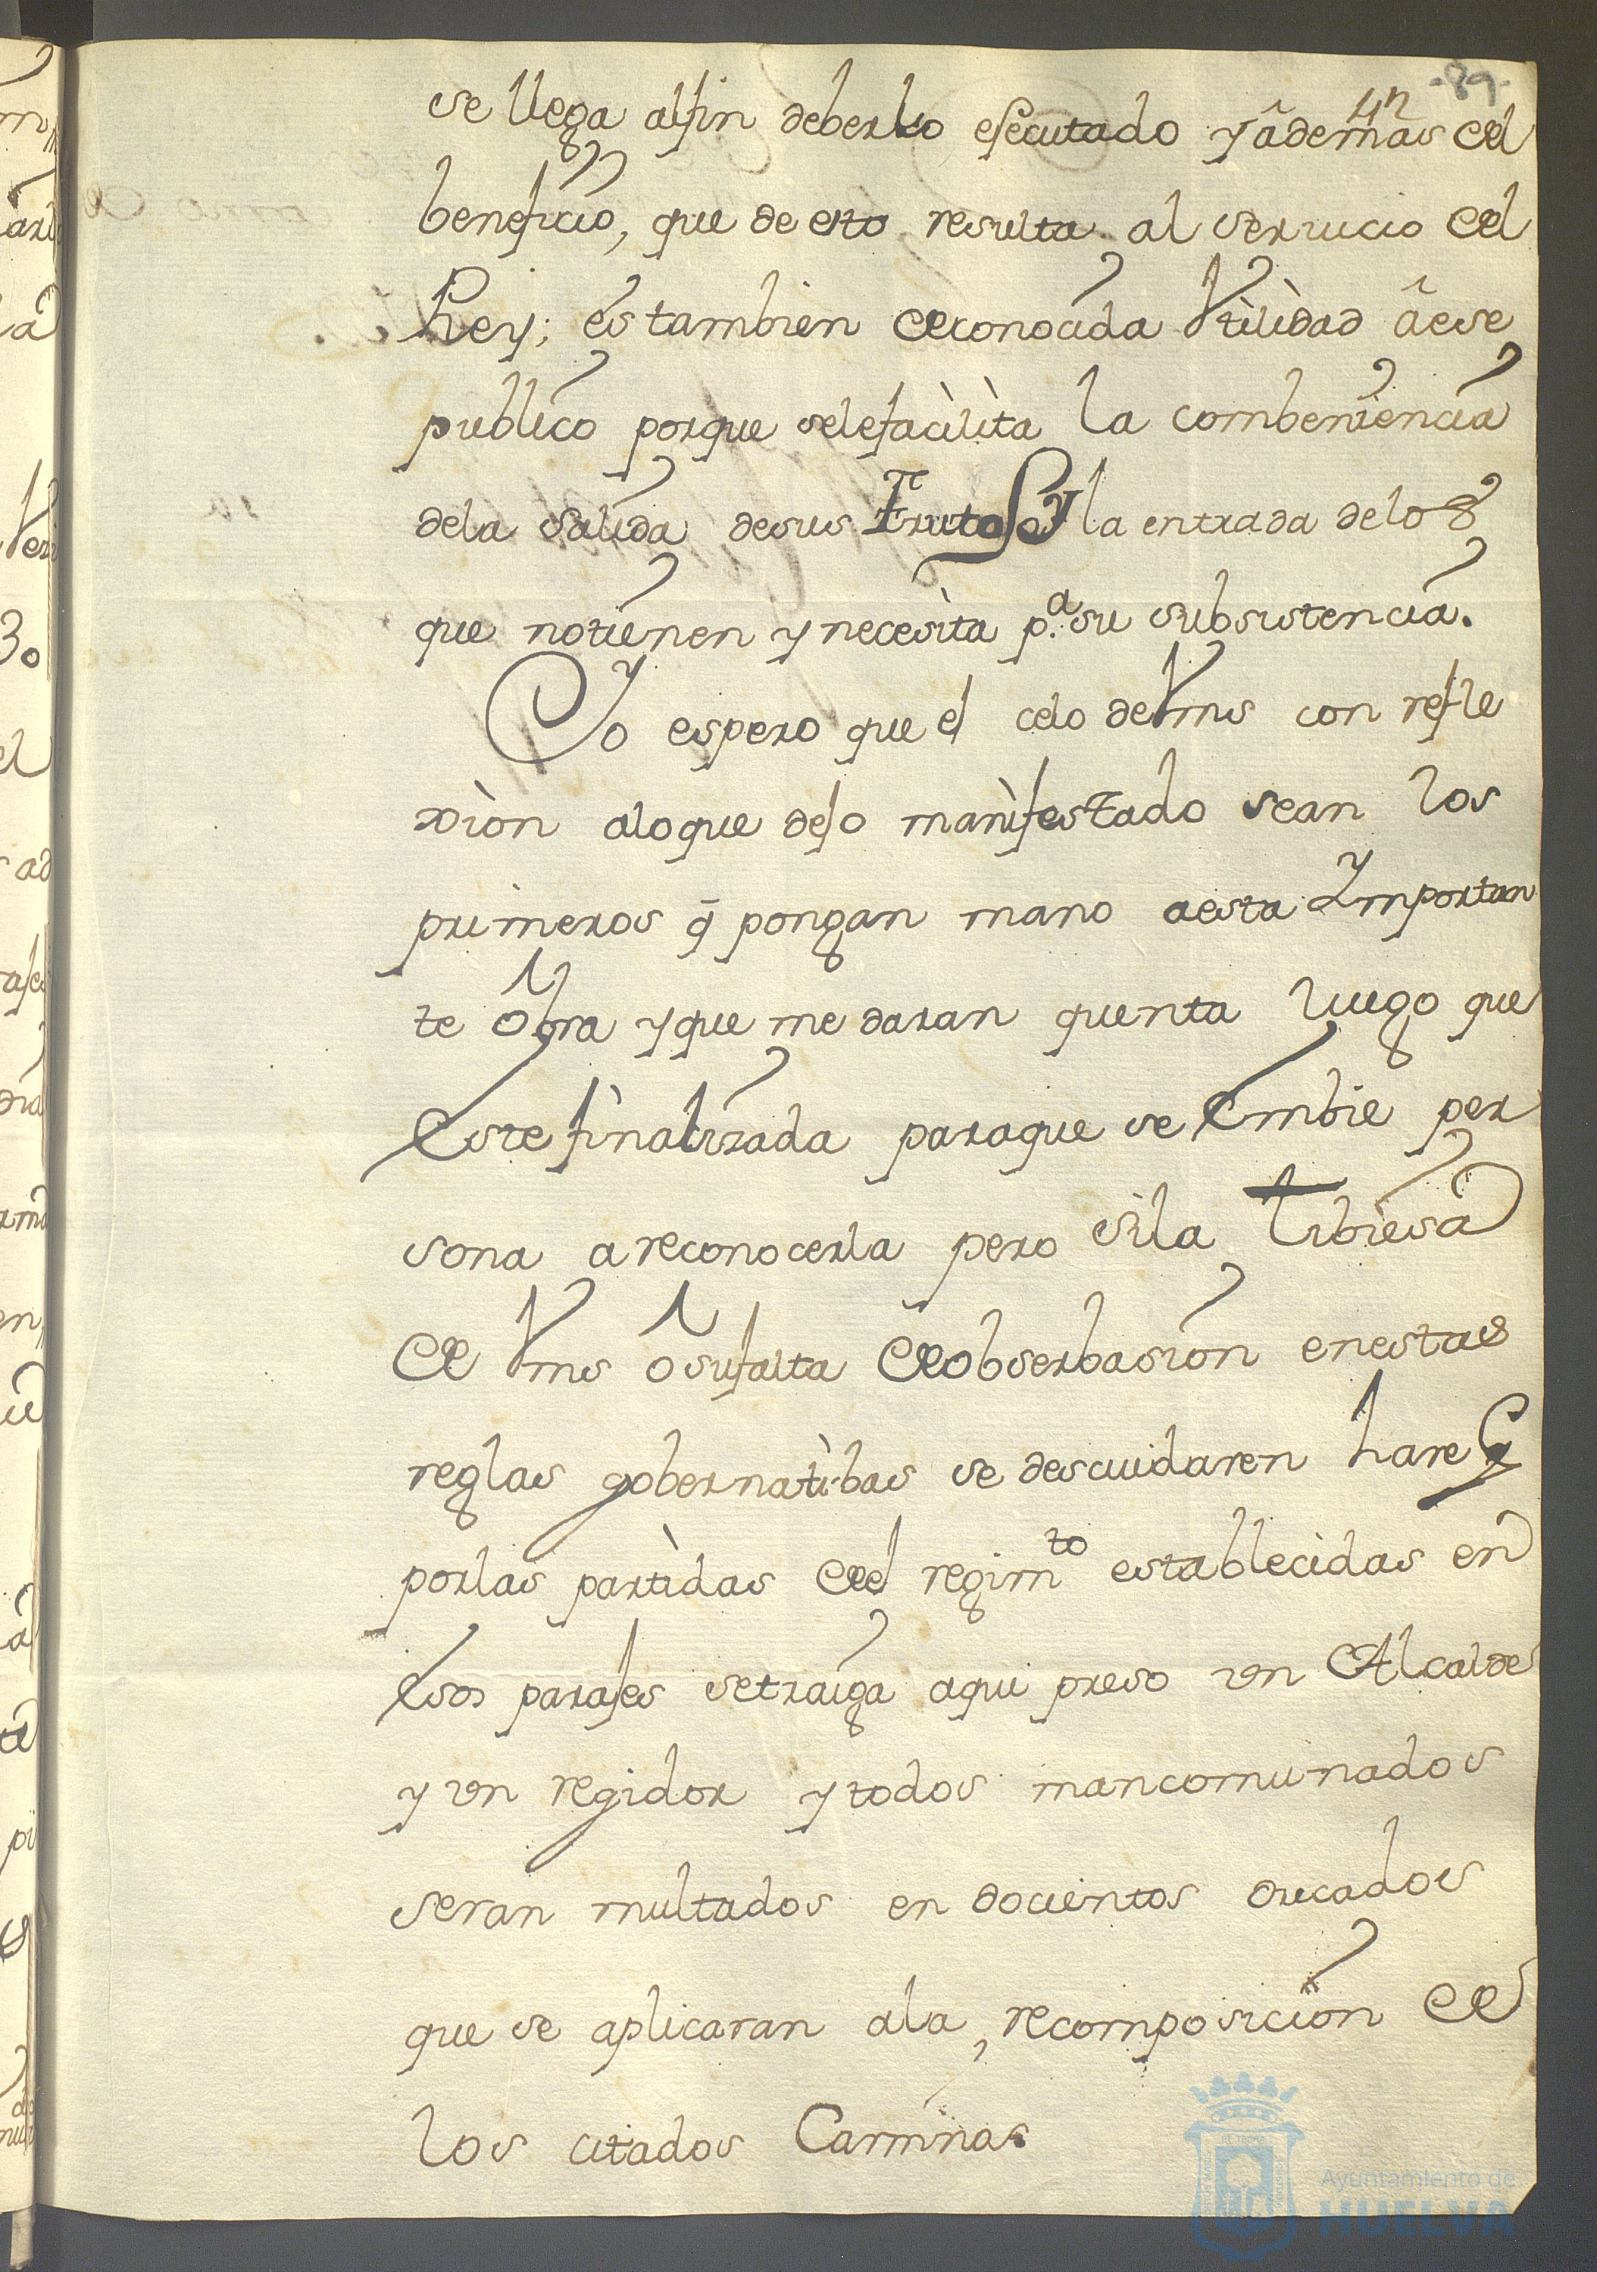 -89-
se llega alfin deberlo esecutado y âdemas del
beneficio, que de esto resulta al serucio del
Rey; es tambien deconocida Vtilidad âese
publico porque selefacilita la combeniencia
dela salida desus Frutos y la entrada delos
que notienen y necesita p.ª su subsistencia.
Yo espero que el celo deVms con refle
xion aloque dejo manifestado sean los
primeros q̃ pongan mano aesta Ymportan
te Obra yque me daran quenta luego que
Este finalizada paraque se Embie per
sona a reconocerla pero sila tibiesa
de Vms o sufalta deobserbasion enestas
reglas gobernatibas se descuidaren hare q
porlas partidas del regimto establecidas en
Esos parajes setraiga aqui preso vn Alcalde
y vn regidor y todos mancomunados
seran multados en docientos ducados
que se aplicaran ala recomposicion de
los citados Caminos.
Ayuntamiento de
HUELVA